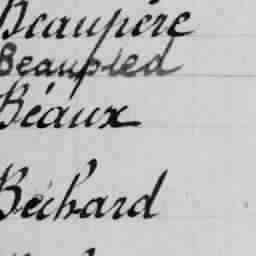 Beaupère
Beaupied
Béaux
Béchard